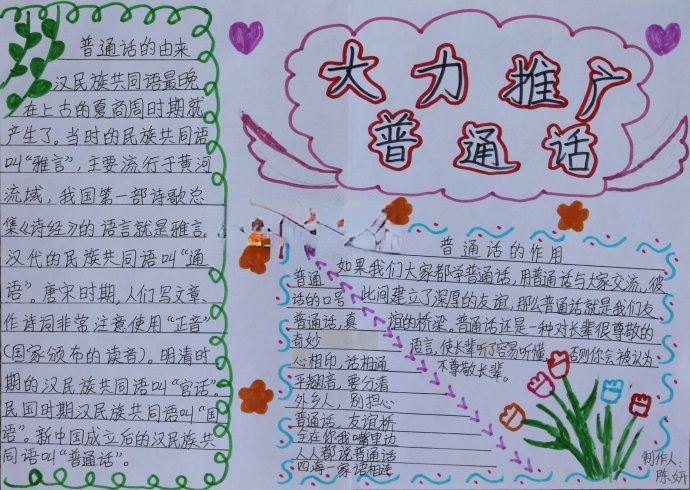 大力推广
普通话
普通话的由来
汉民族共同语最晚
在上古的夏商周时期就
产生了。当时的民族共同语
叫“雅言”，主要流行于黄河
流域，我国第一部诗歌总
集《诗经》的语言就是雅言。
汉代的民族共同语叫“通
语”。唐宋时期，人们写文章、
作诗词非常注意使用“正音”
（国家颁布的读音）。明清时
期的汉民族共同语叫“官话”。
民国时期汉民族共同语叫“国
语”。新中国成立后的汉民族共
同语叫“普通话”。
普通话的作用
如果我们大家都学普通话，用普通话与大家交流，彼
此间建立了深厚的友谊，那么普通话就是我们友
谊的桥梁。普通话还是一种对长辈很尊敬的
语言，使长辈听了容易听懂，否则你会被认为
不尊敬长辈。
普通
话的口号
普通话，真
奇妙
心相印，话相通
平翘音，要分清
外乡人，别担心
普通话，友谊桥
全在你我嘴里边
人人都说普通话
四海一家语相连
制作人：
陈妍